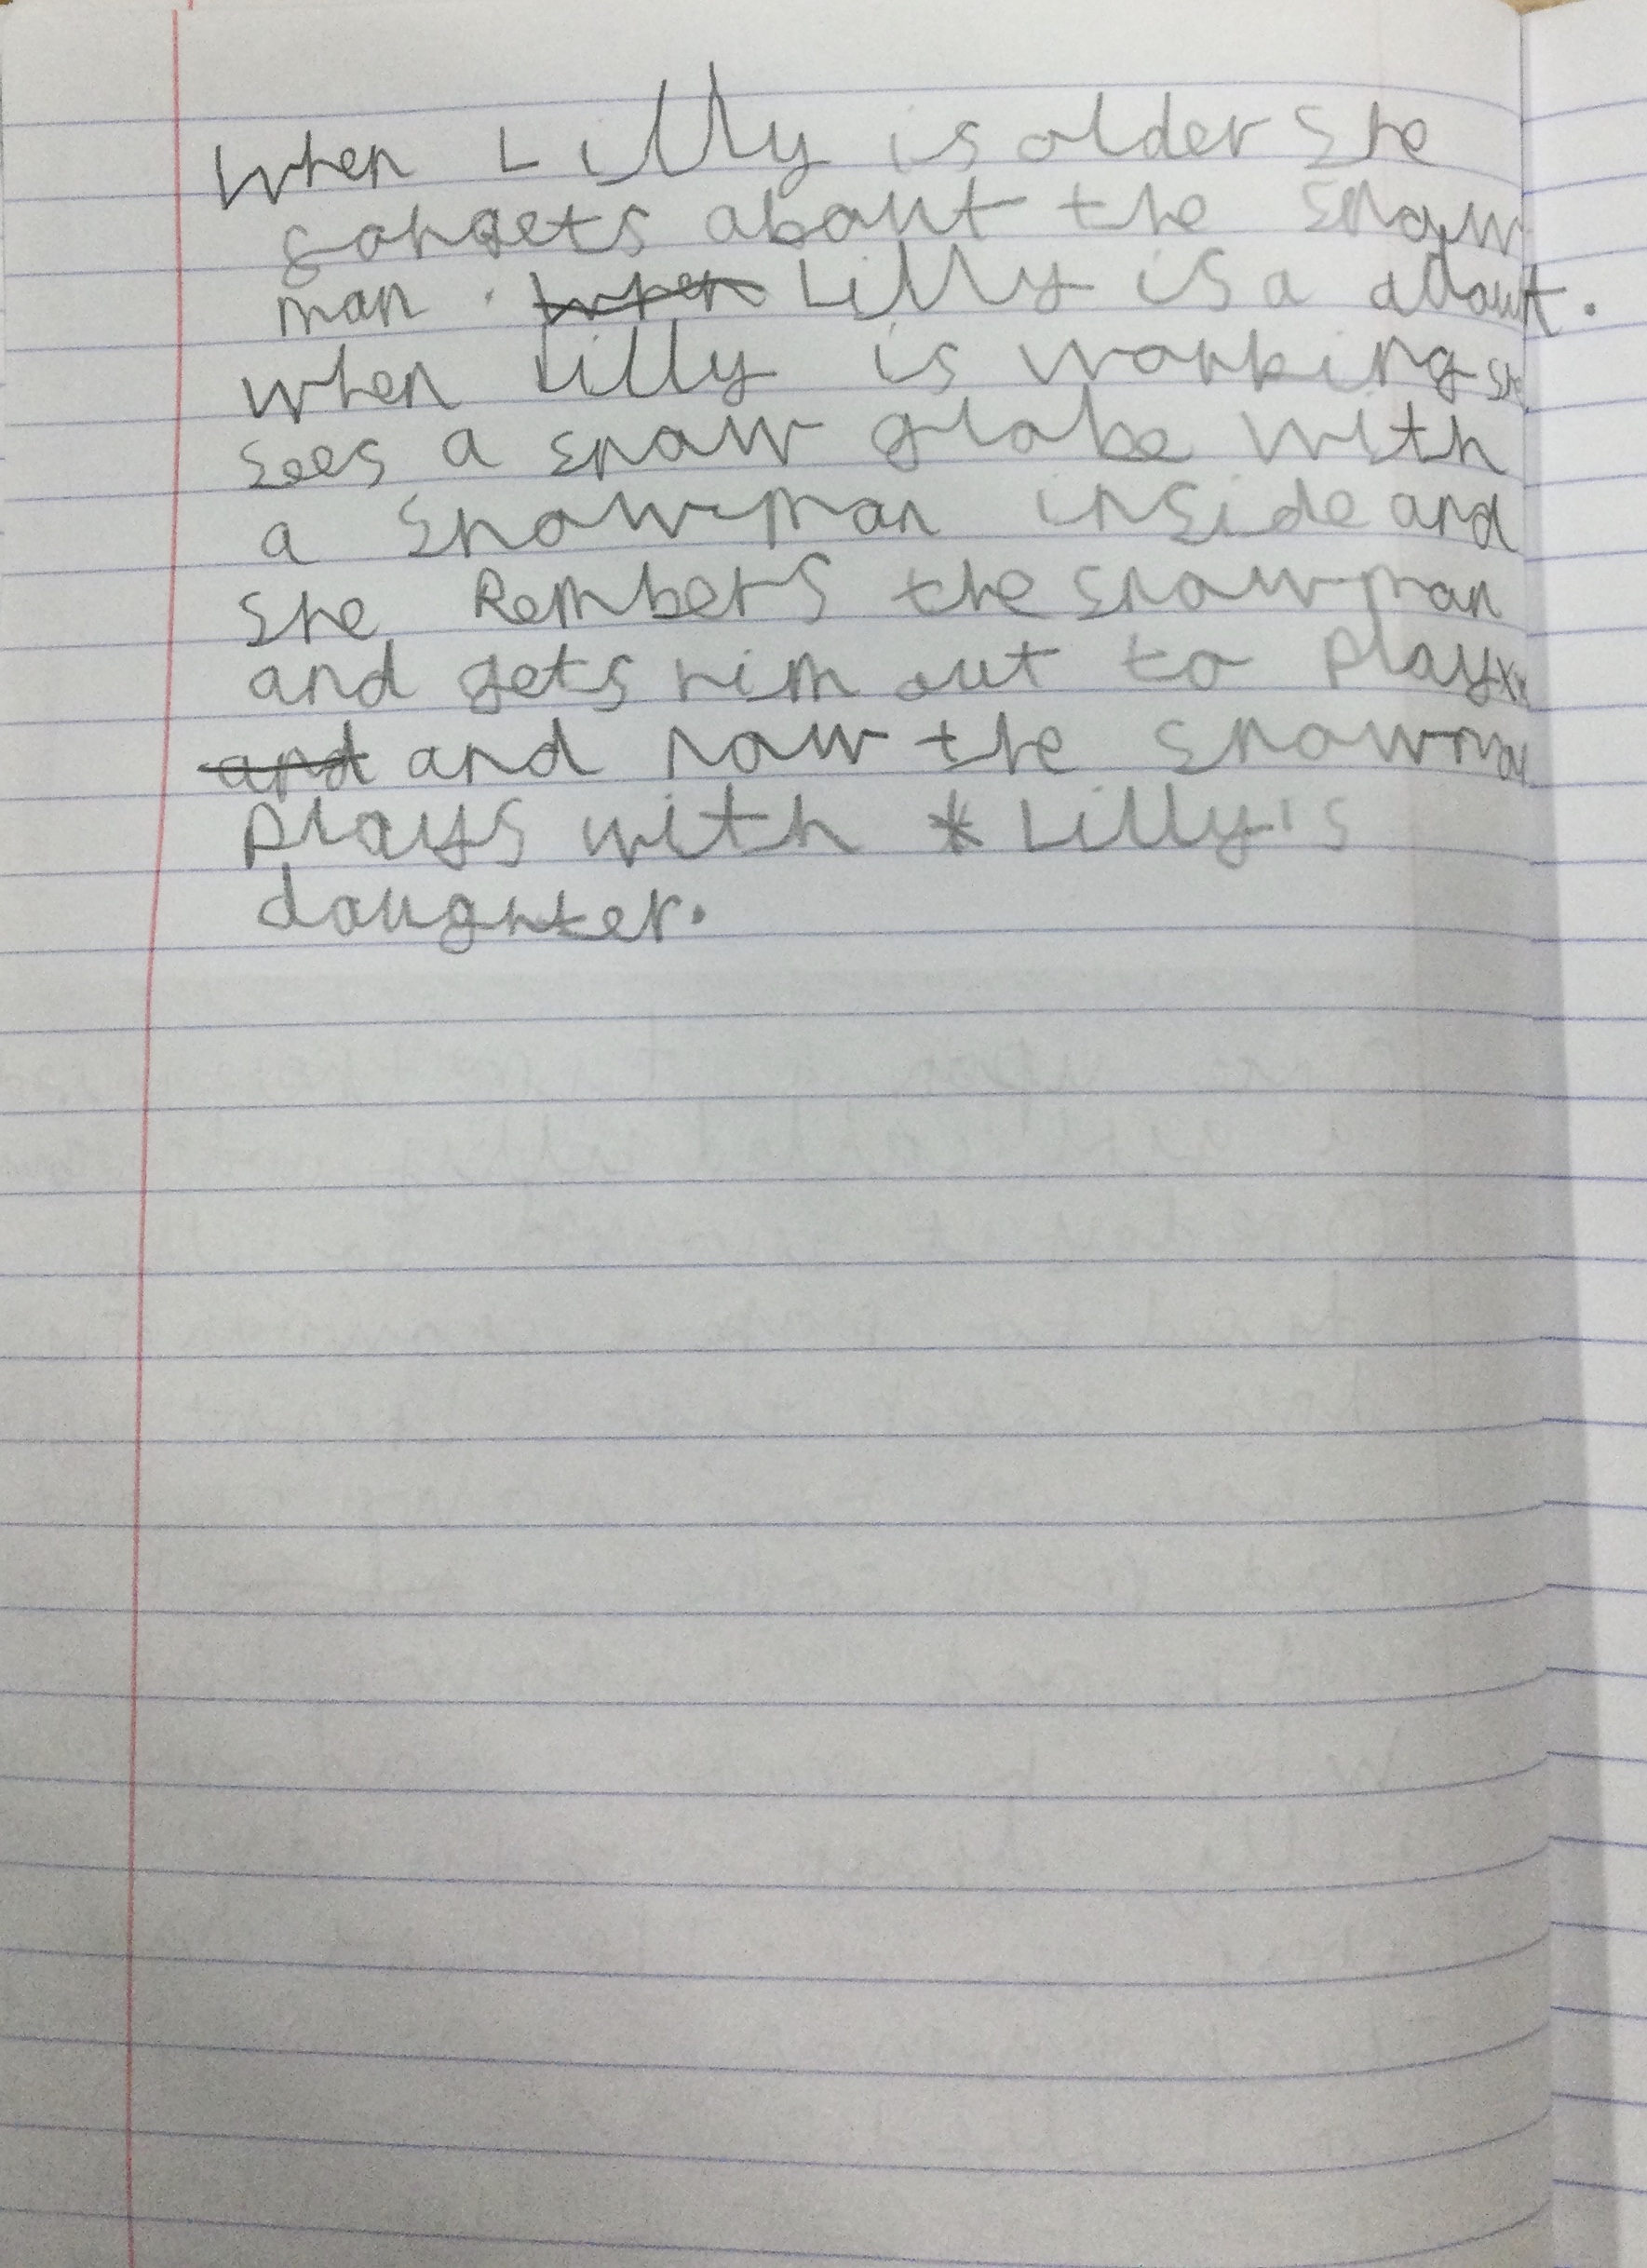 When Lilly is older she
forgets about the snow
man . Lilly is a allout.
when Lilly is working she
sees a snow globe with
a snowman inside and
she Rembers the snowman
and gets him out to play
and now the snowman
plays with Lilly's
daughter.